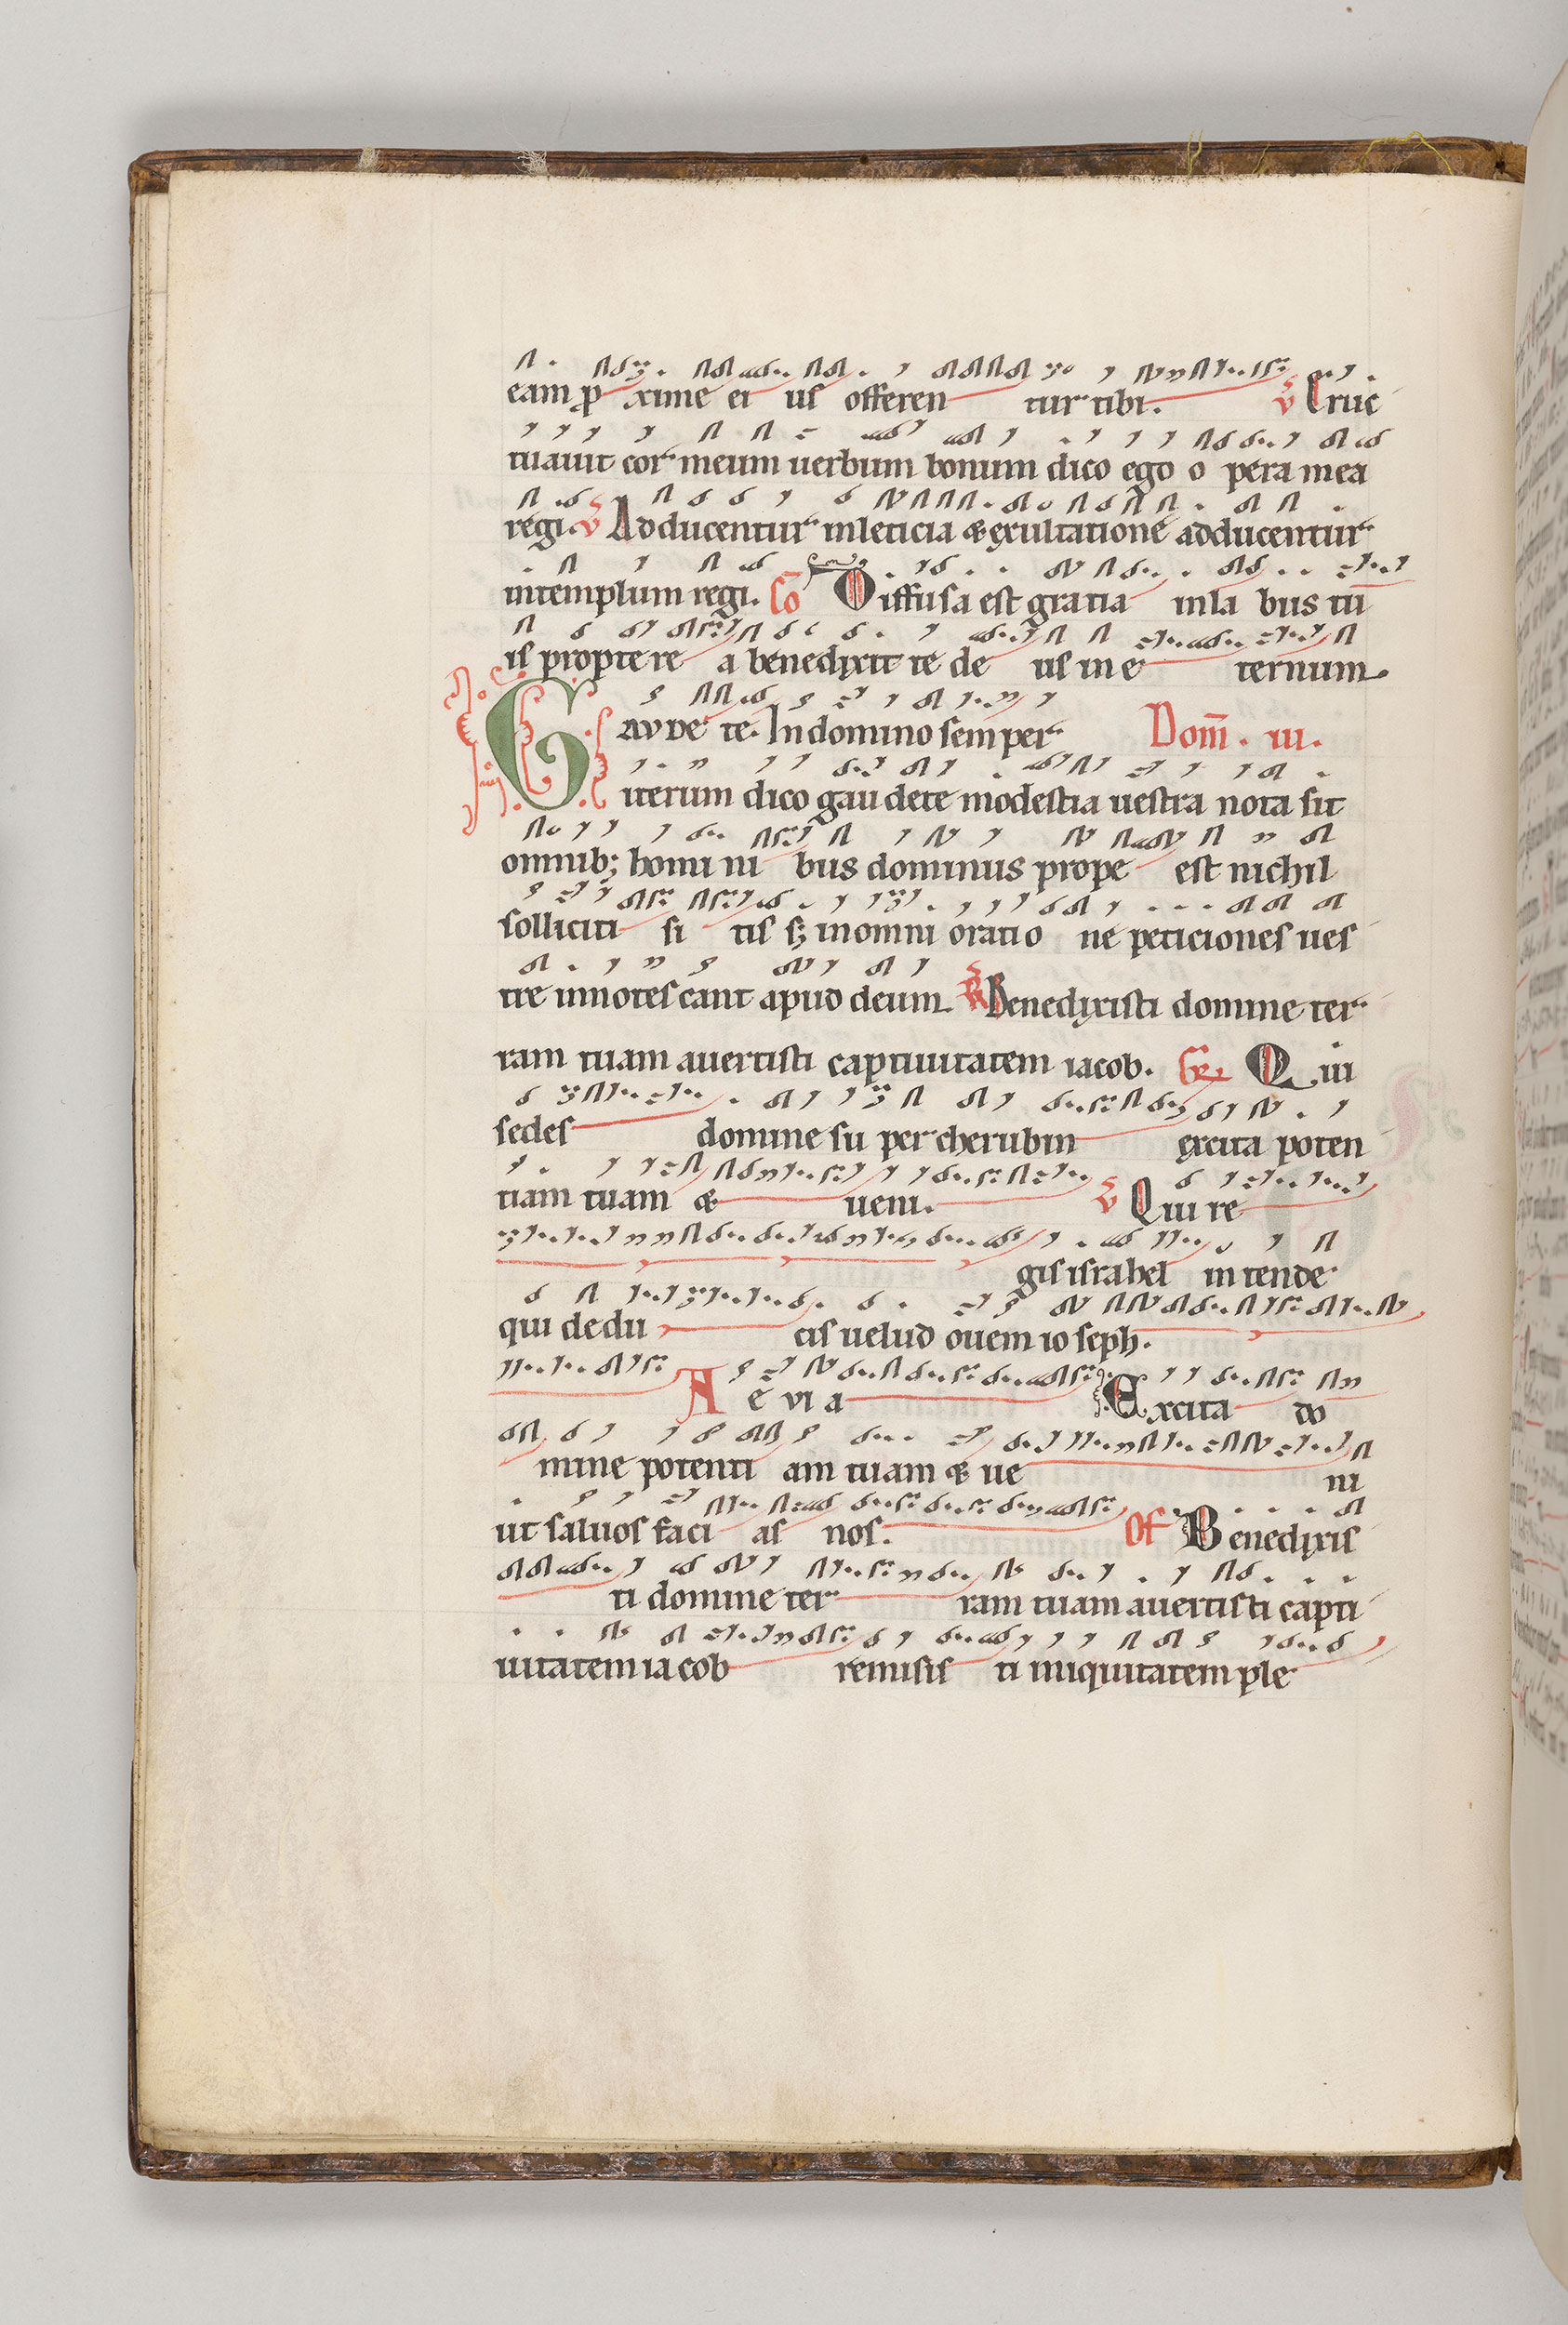 eam p̱ xime ei us offeren tur tibi. v̄ Eruc
tuauit cor meum uerbum bonum dico ego o pera mea
regi. v̄ Adducentur inleticia & exultatione adducentur
intemplum regi. Co Diffusa est gratia inla bus tu
is proptere a benedixit te de us in e ternum.
GAUDE te. In domino sem per Dom̄. iii.
iterum dico gau dete modestia uestra nota sit
omnib; homi ni bus dominus prope est nichil
solliciti si tis s; inomni oratio ne peticiones ues
tre innotescant apud deum. Ps Benedixisti domine ter
ram tuam auertisti captiuitatem iacob. Gr. Qui
sedes domine su per cherubin excita poten
tiam tuam & ueni. v̄ Qui re
gis israhel in tende
qui dedu cis uelud ouem io seph.
A e vi a Excita do
mine potenti am tuam & ue ni
ut saluos faci as nos. Of Benedixis
ti domine ter ram tuam auertisti capti
uitatem ia cob remisis ti iniquitatem ple